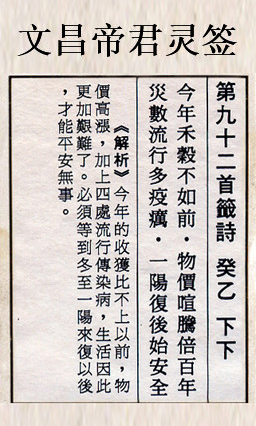 文昌帝君灵签
第九十二首籤詩 癸乙 下下
今年禾穀不如前．物價喧騰倍百年
災數流行多疫癘．一陽復後始安全
《解析》今年的收獲比不上以前，物
價高漲，加上四處流行傳染病，生活因此
更加艱難了。必須等到冬至一陽來復以後
，才能平安無事。